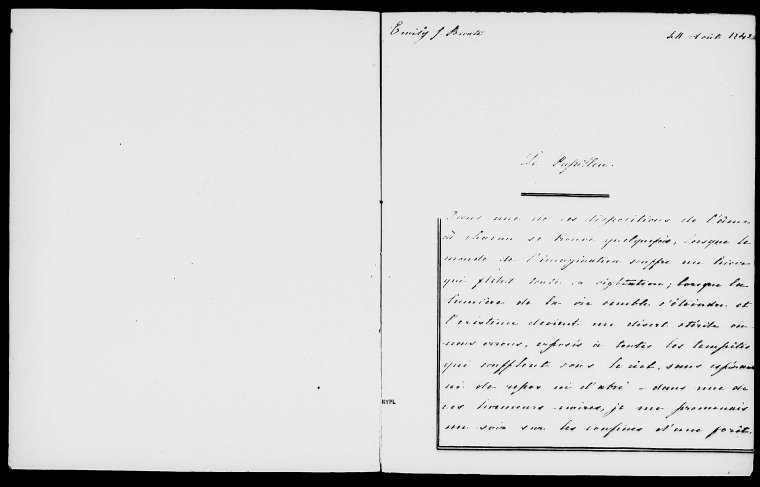 Emily J. Brontë
le 11 Août 1842
Le Papillon.
Dans une de ces dispositions de l'âme
où chacun se trouve quelquefois, lorsque le
monde de l'imagination souffre un hiver
qui flétrit toute sa végétation; lorsque la
lumière de la vie semble s'éteindre et
l'existence devient un désert stérile où
nous errons, exposés à toutes les tempêtes
qui soufflent sous le ciel, sans espérance
ni de repos ni d'abri – dans une de
ces humeurs noires, je me promenais
un soir sur les confins d'une forêt.
NYPL